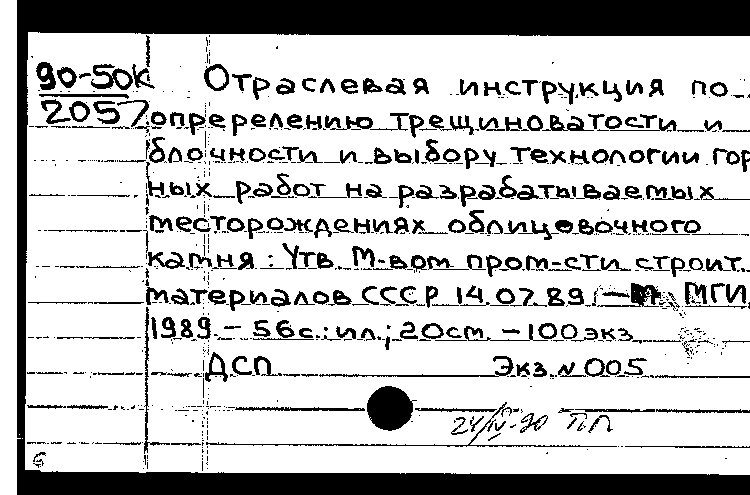 90-50К
2057
Отраслевая инструкция по
опререлению трещиноватости и
блочности и выбору технологии гор
ных работ на разрабатываемых
месторождениях облицовочного
камня: Утв. М-вом пром-сти строит.
материалов СССР 14.07.89. - М. МГИ,
1989. - 56с.: ил.; 20см. - 100 экз.
ДСП Экз. N 005
24/IV-90
6